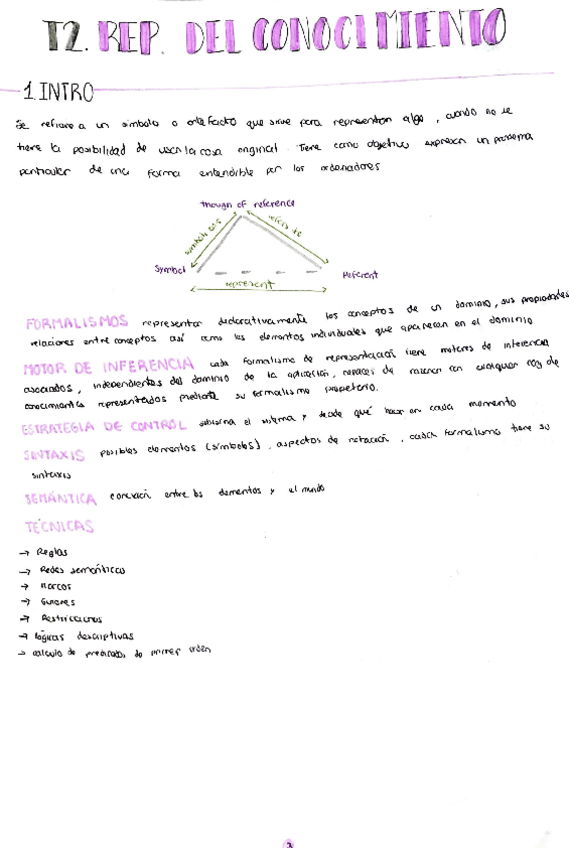 T2. REP. DEL CONOCIMIENTO
1. INTRO
Se refiere a un símbolo o artefacto que sirve para representar algo, cuando no se
tiene la posibilidad de usar la cosa original. Tiene como objetivo expresar un problema
particular de una forma entendible por los ordenadores
though of reference
symbolises
refers to
Symbol
Referent
represent
FORMALISMOS representar declarativamente los conceptos de un dominio, sus propiedades
relaciones entre conceptos así como los elementos individuales que aparecen en el dominio
MOTOR DE INFERENCIA cada formalismo de representación tiene motores de inferencia
asociados, independientes del dominio de la aplicación, capaces de razonar con cualquier de
conocimientos representados mediante su formalismo propietario.
ESTRATEGIA DE CONTROL el sistema y decide qué hacer en cada momento
SINTAXIS posibles elementos (símbolos), aspectos de notación, cada formalismo tiene su
sintaxis
SEMÁNTICA conexión entre los elementos y el mundo
TÉCNICAS
→ Reglas
→ Redes semánticas
→ Marcos
→ Guiones
→ Restricciones
→ lógicas descriptivas
→ cálculo de predicados de primer orden